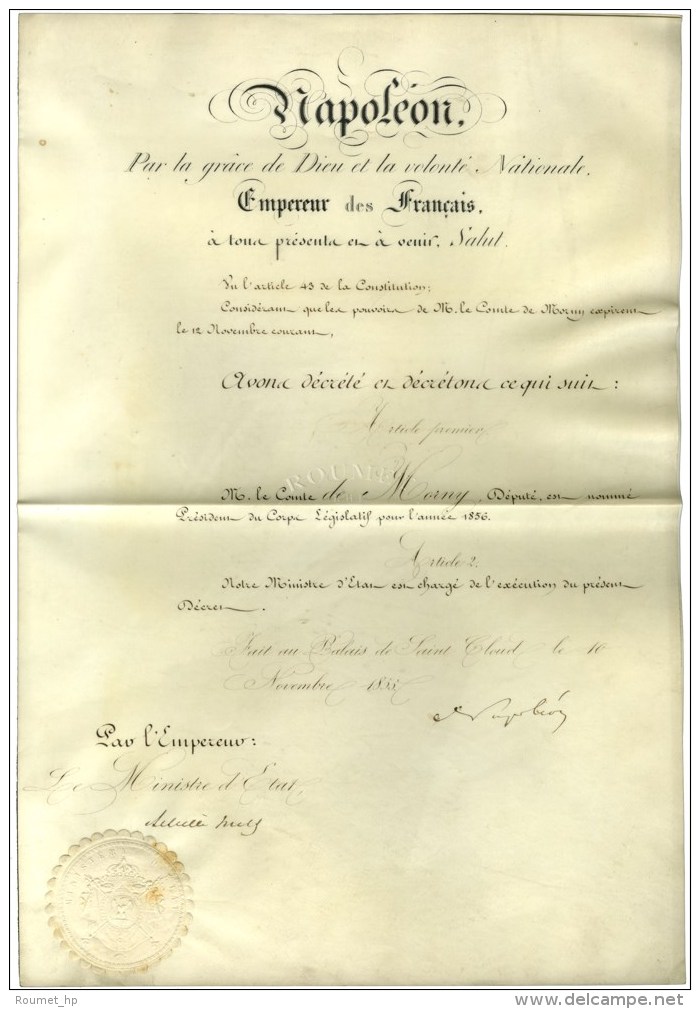 Napoléon,
Par la grâce de Dieu et la volonté Nationale,
Empereur des Français,
à tous présents et à venir, Salut.
Vu l'article 43 de la Constitution;
Considérant que les pouvoirs de M. le Comte de Morny expirent
le 12 Novembre courant,
Avons décrété et décrétons ce qui suit:
Article premier
ROUMET
M. le Comte de Morny, Député, est nommé
Président du Corps Législatif pour l'année 1856.
Article 2.
Notre Ministre d'Etat est chargé de l'exécution du présent
Décret.
Fait au Palais de Saint Cloud le 10
Novembre 1855
Napoléon
Par l'Empereur:
Le Ministre d'Etat
Achille Fould
Roumet_hp
delcampe.net